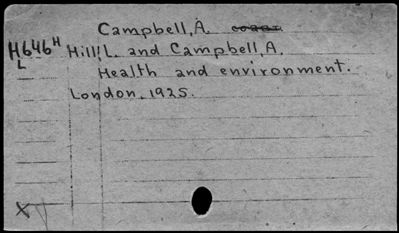 Campbell, A.
H646H Hill, L. and Campbell, A.
L
Health and environment.
London, 1925.
X